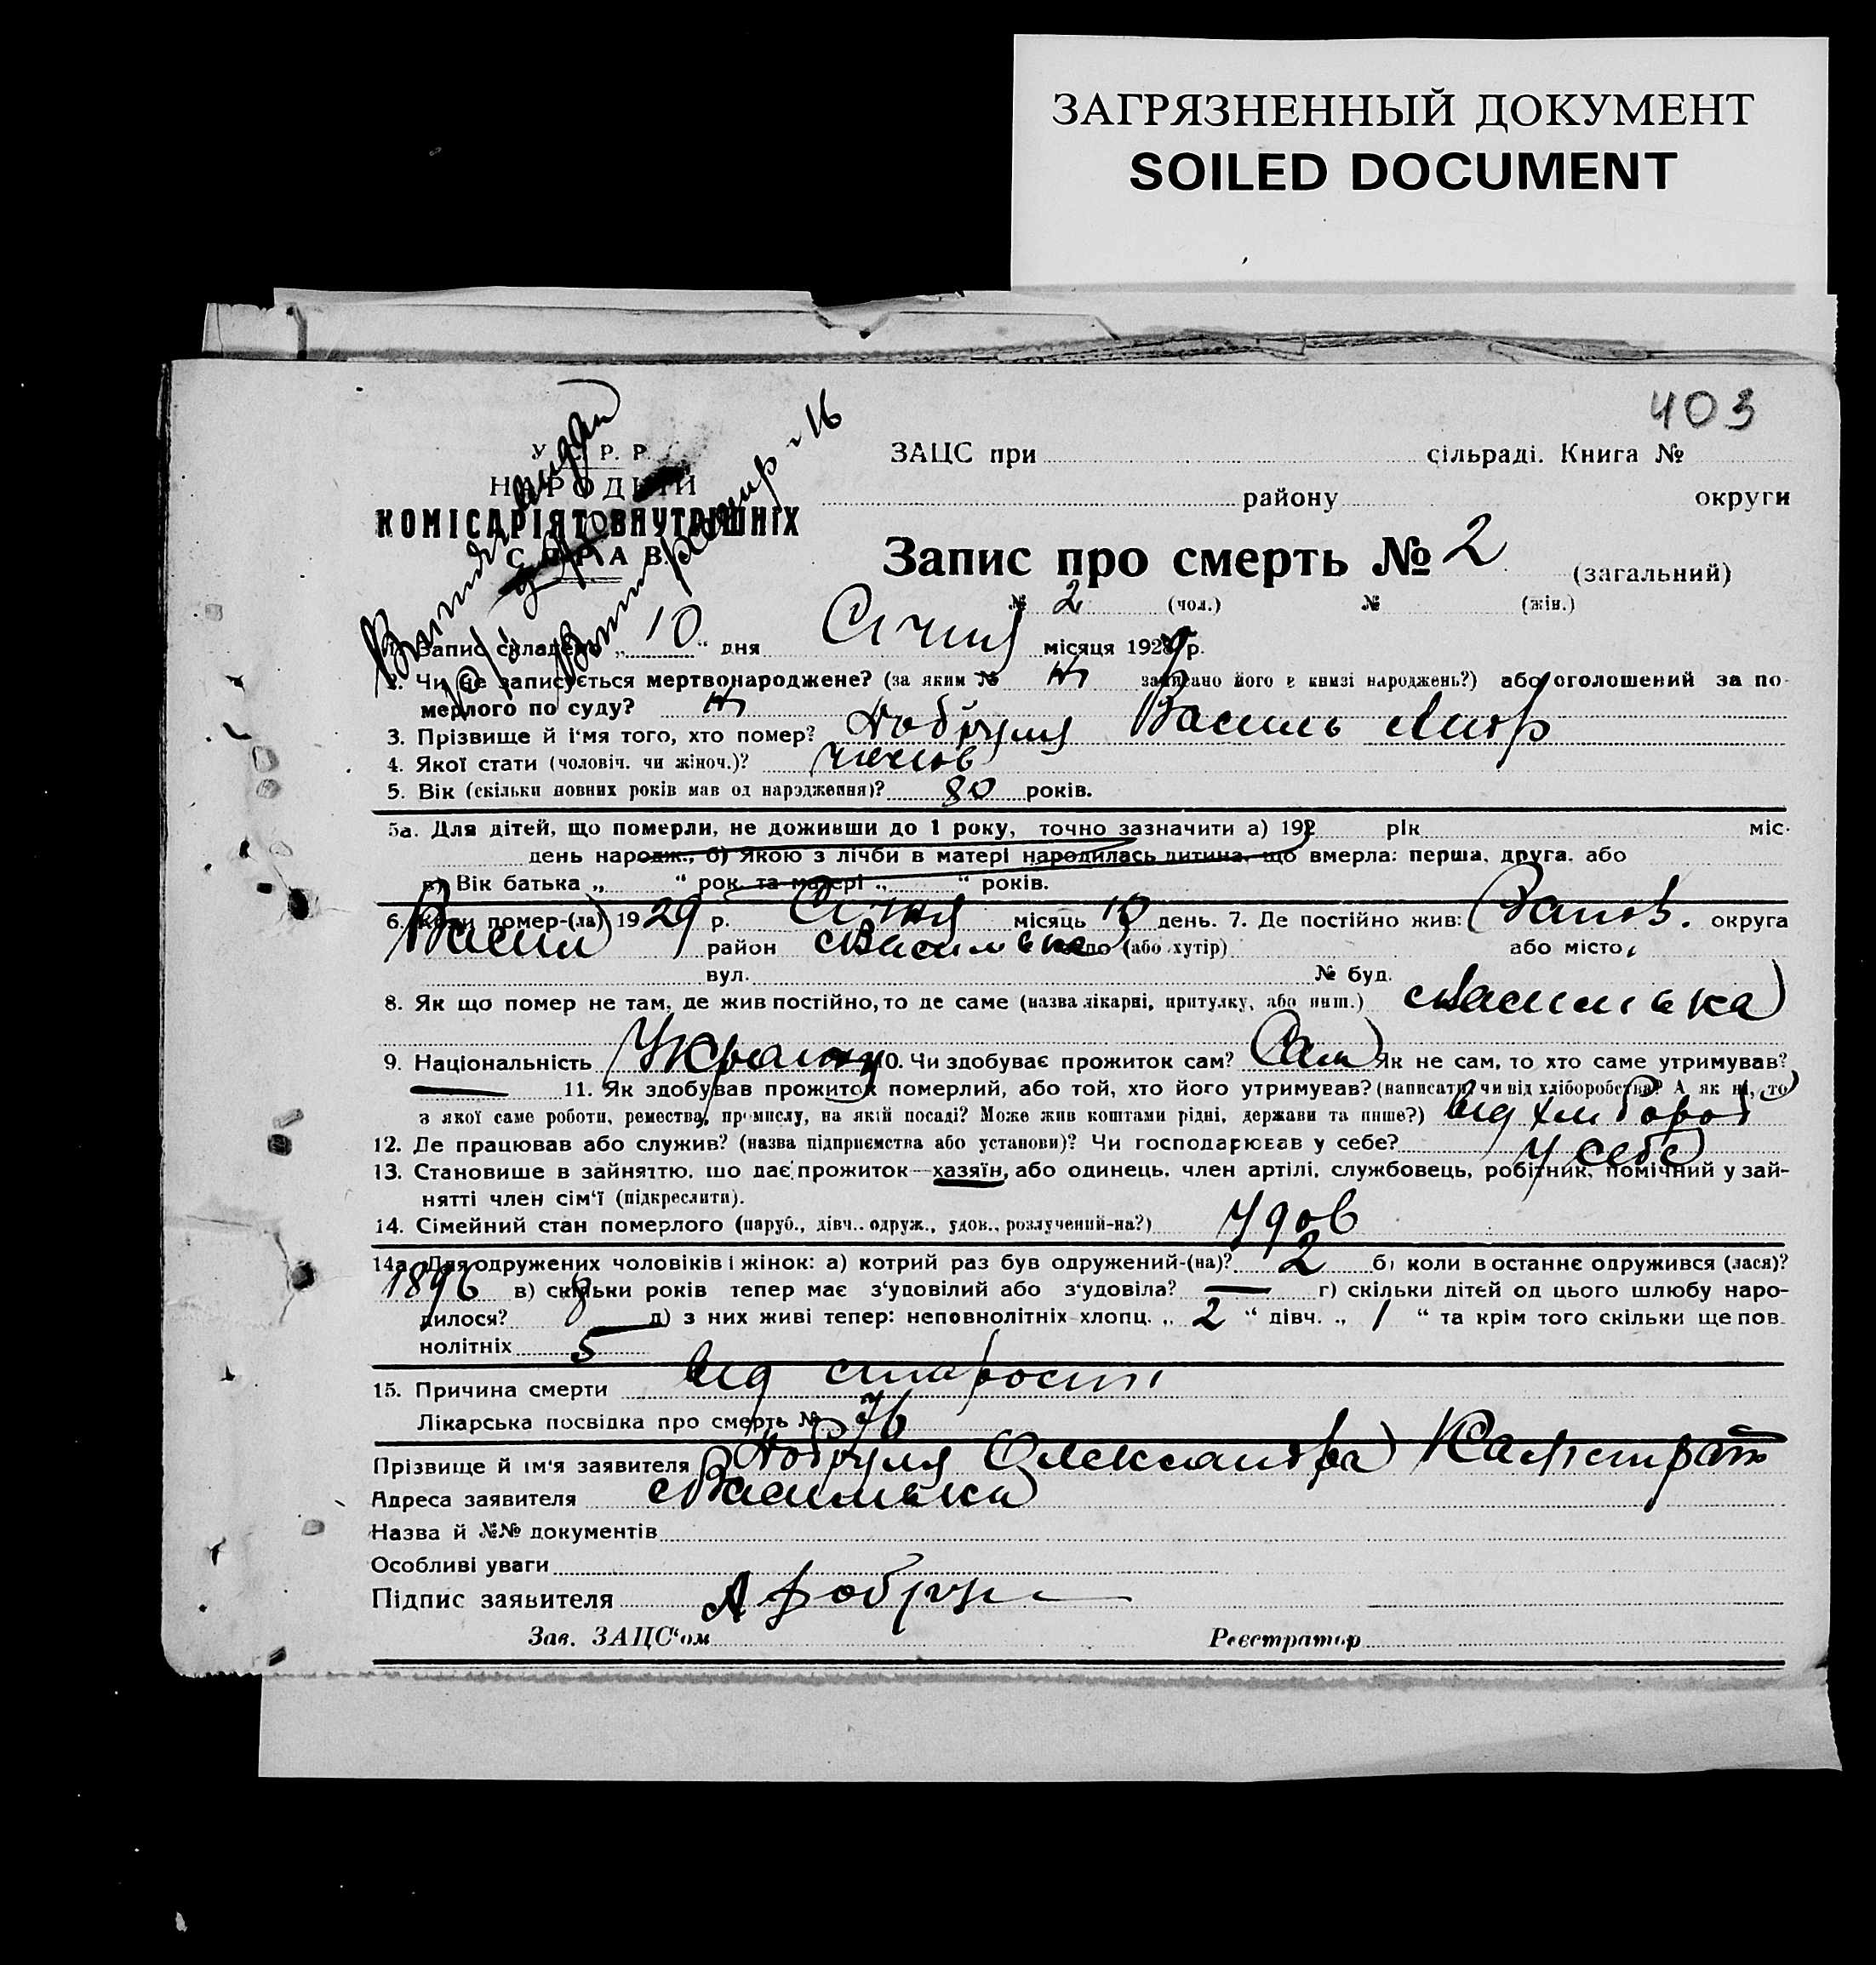 ЗАГРЯЗНЕННЫЙ ДОКУМЕНТ
SOILED DOCUMENT
403
У. С. Р. Р.
НАРОДНІЙ
КОМІСАРІЯТ ВНУТРІШНІХ
СПРАВ.
ЗАЦС при сільраді. Книга №
району округи
Запис про смерть № 2 (загальний)
№ 2 (чол.) № (жін.)
1. Запис складено „ 10 “ дня Січня місяця 1929 р.
2. Чи не записується мертвонароджене? (за яким № ні записано його в книзі народжень?) або оголошений за по-
мерлого по суду? ні
3. Прізвище й і'мя того, хто помер? Добруля Василь
4. Якої стати (чоловіч. чи жіноч.)? чолов
5. Вік (скільки повних років мав од народження)? 80 років.
5а. Для дітей, що померли, не доживши до 1 року, точно зазначити а) 192 рік міс.
день народж., б) Якою з лічби в матері народилась дитина, що вмерла: перша, друга, або
в) Вік батька „ “ рок. та матері „ “ років.
6. Коли помер-(ла) 1929 р. Січня місяць 10 день. 7. Де постійно жив: Запов. округа
Васил район с Василівка село (або хутір) або місто
вул. № буд.
8. Як що помер не там, де жив постійно, то де саме (назва лікарні, притулку, або инш.) с Василівка
9. Національність Україн 10. Чи здобуває прожиток сам? Сам Як не сам, то хто саме утримував?
— 11. Як здобував прожиток померлий, або той, хто його утримував? (написати чи від хліборобства? А як ні, то
з якої саме роботи, ремества, промислу, на якій посаді? Може жив коштами рідні, держави та инше?) від хлібороб
12. Де працював або служив? (назва підприємства або установи)? Чи господарював у себе? У себе
13. Становише в зайняттю, що дає прожиток—хазяїн, або одинець, член артілі, службовець, робітник, помічний у зай-
нятті член сім'ї (підкреслити).
14. Сімейний стан померлого (паруб., дівч.. одруж., удов., розлучений-на?) Удов
14а. Для одружених чоловіків і жінок: а) котрий раз був одружений-(на)? 2 б) коли востаннє одружився (лася)?
1896 в) скільки років тепер має з'удовілий або з'удовіла? — г) скільки дітей од цього шлюбу наро-
дилося? 8 д) з них живі тепер: неповнолітніх хлопц. „ 2 “ дівч. „ 1 “ та крім того скільки ще пов-
нолітніх 5
15. Причина смерти від старости
Лікарська посвідка про смерть № 76
Прізвище й ім'я заявителя Добруля Олександра
Адреса заявителя с Василівка
Назва й №№ документів
Особливі уваги
Підпис заявителя А Добруля
Зав. ЗАЦС'ом Реєстратор